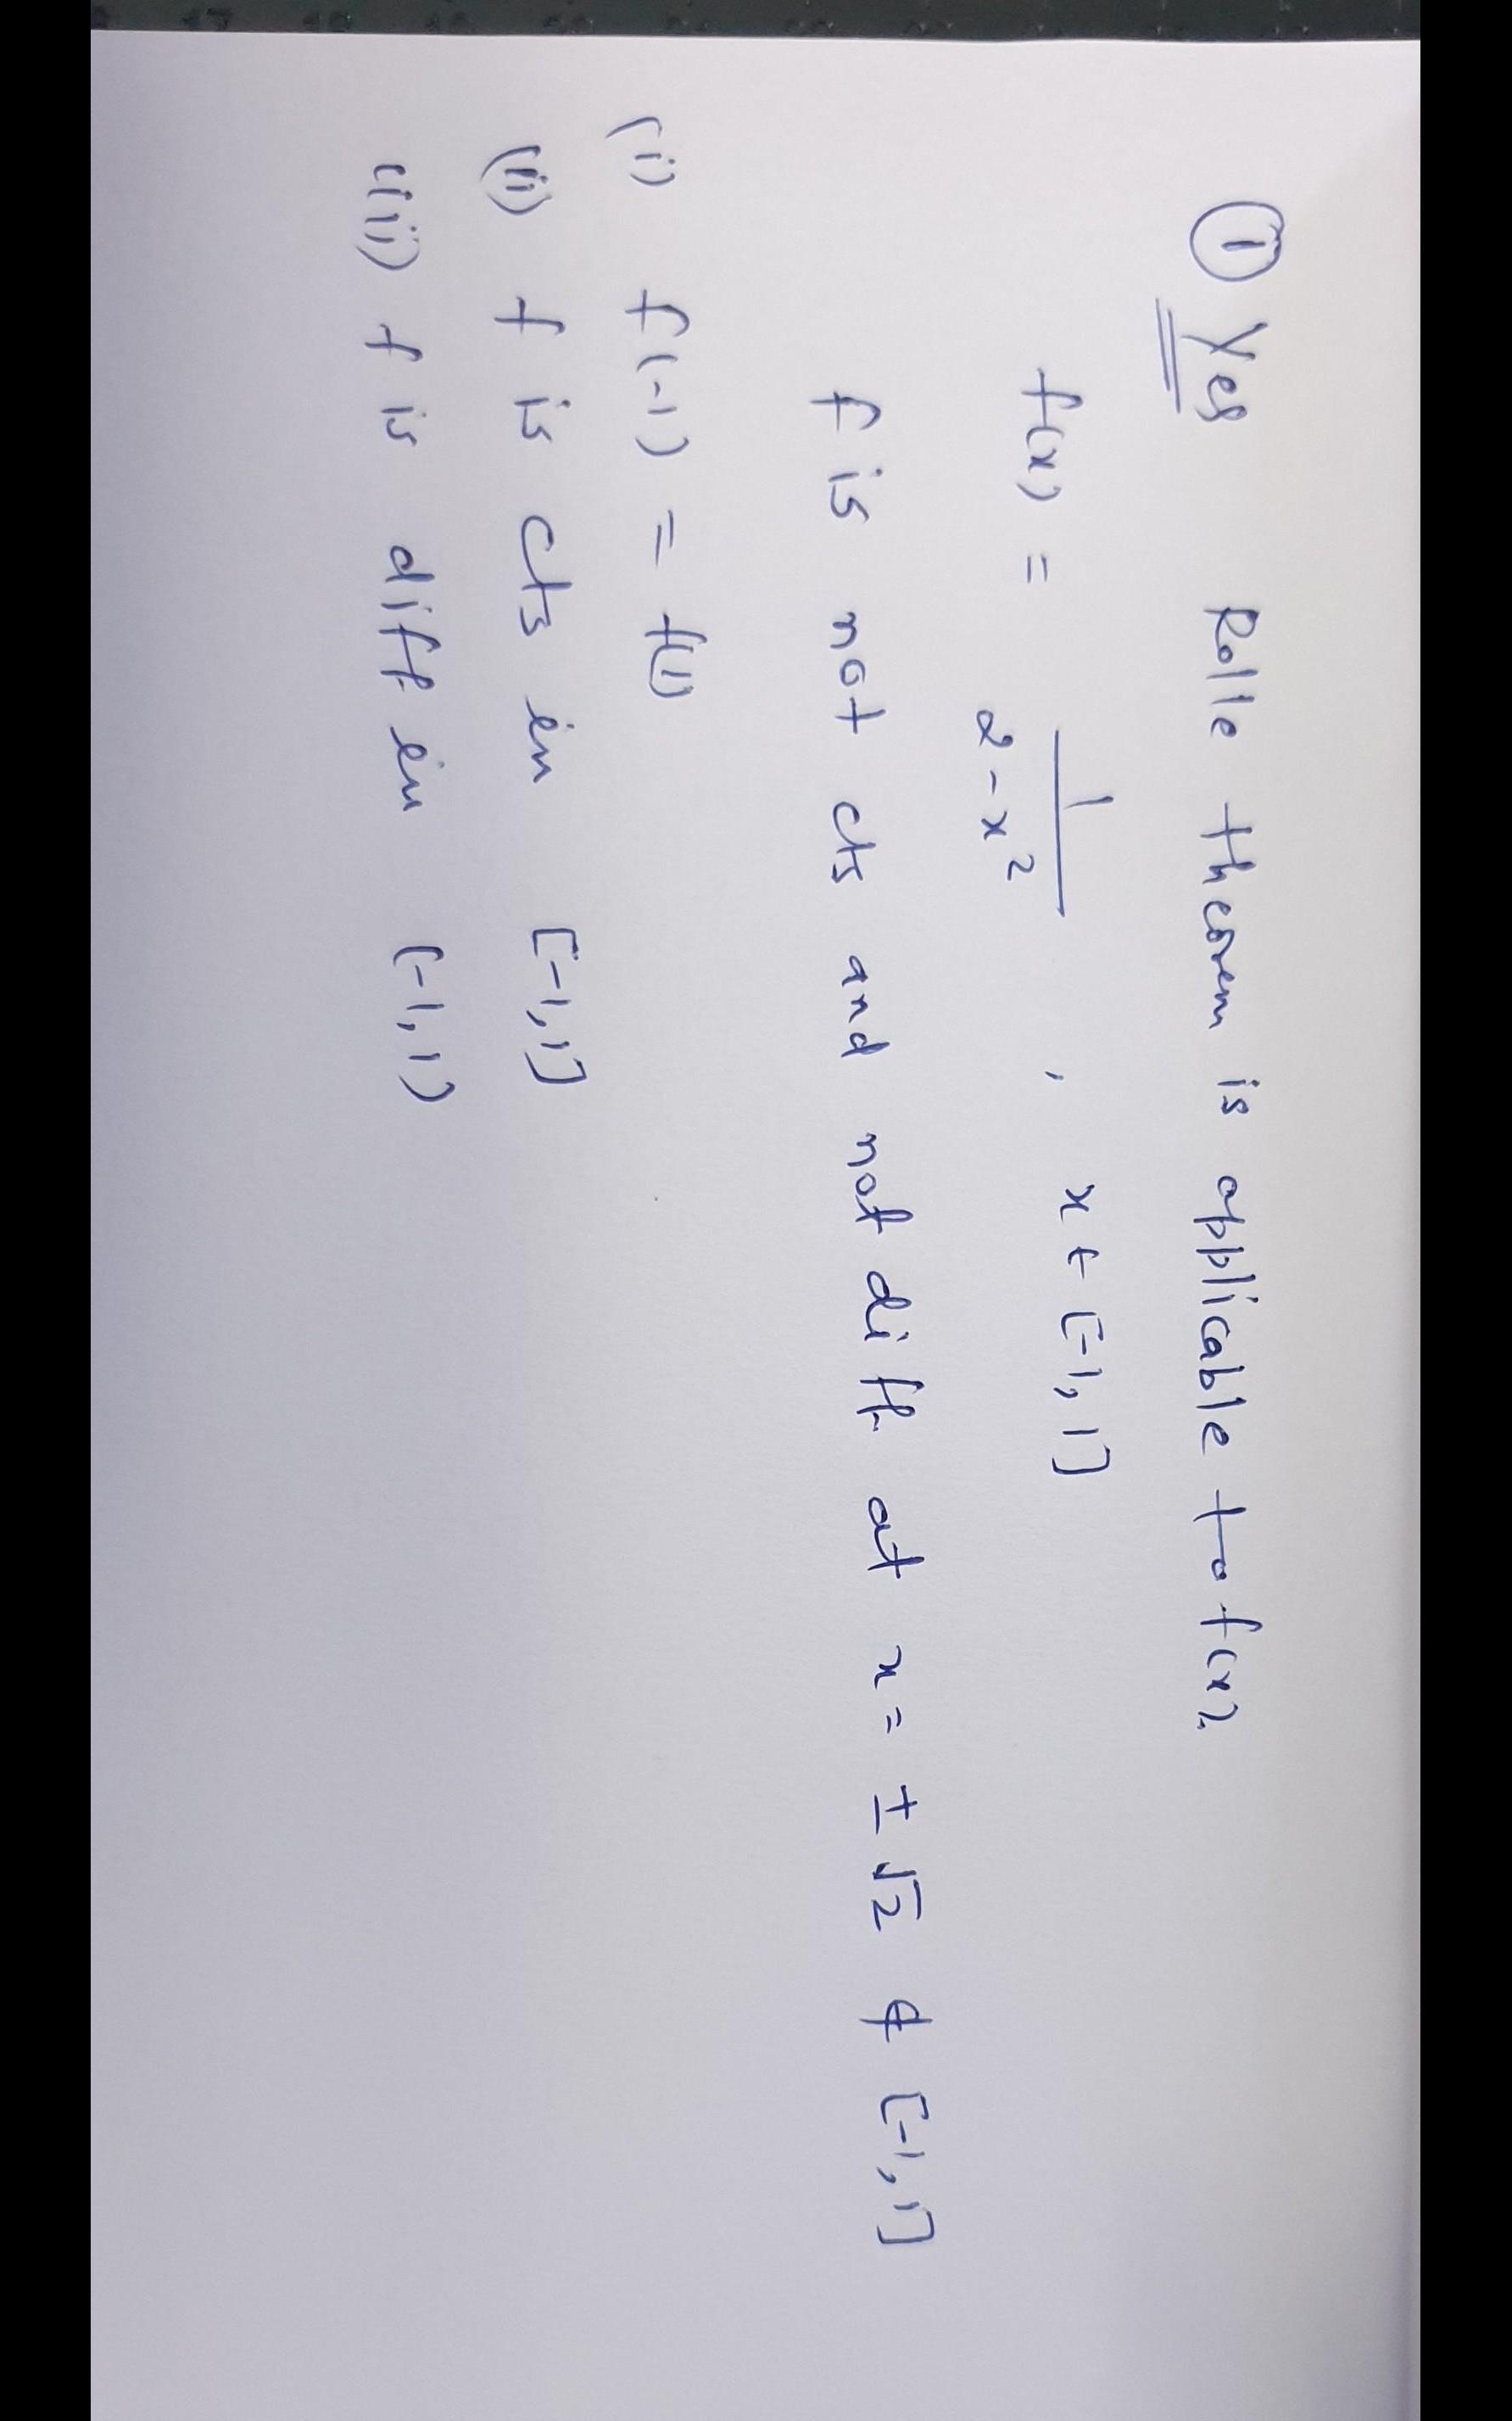 ① Yes Rolle theorem is applicable to f(x).
f(x) = 1/(2-x²) , x ∈ [-1, 1]
f is not cts and not diff. at x = ±√2 ∉ [-1, 1]
(i) f(-1) = f(1)
(ii) f is cts in [-1, 1]
(iii) f is diff. in (-1, 1)